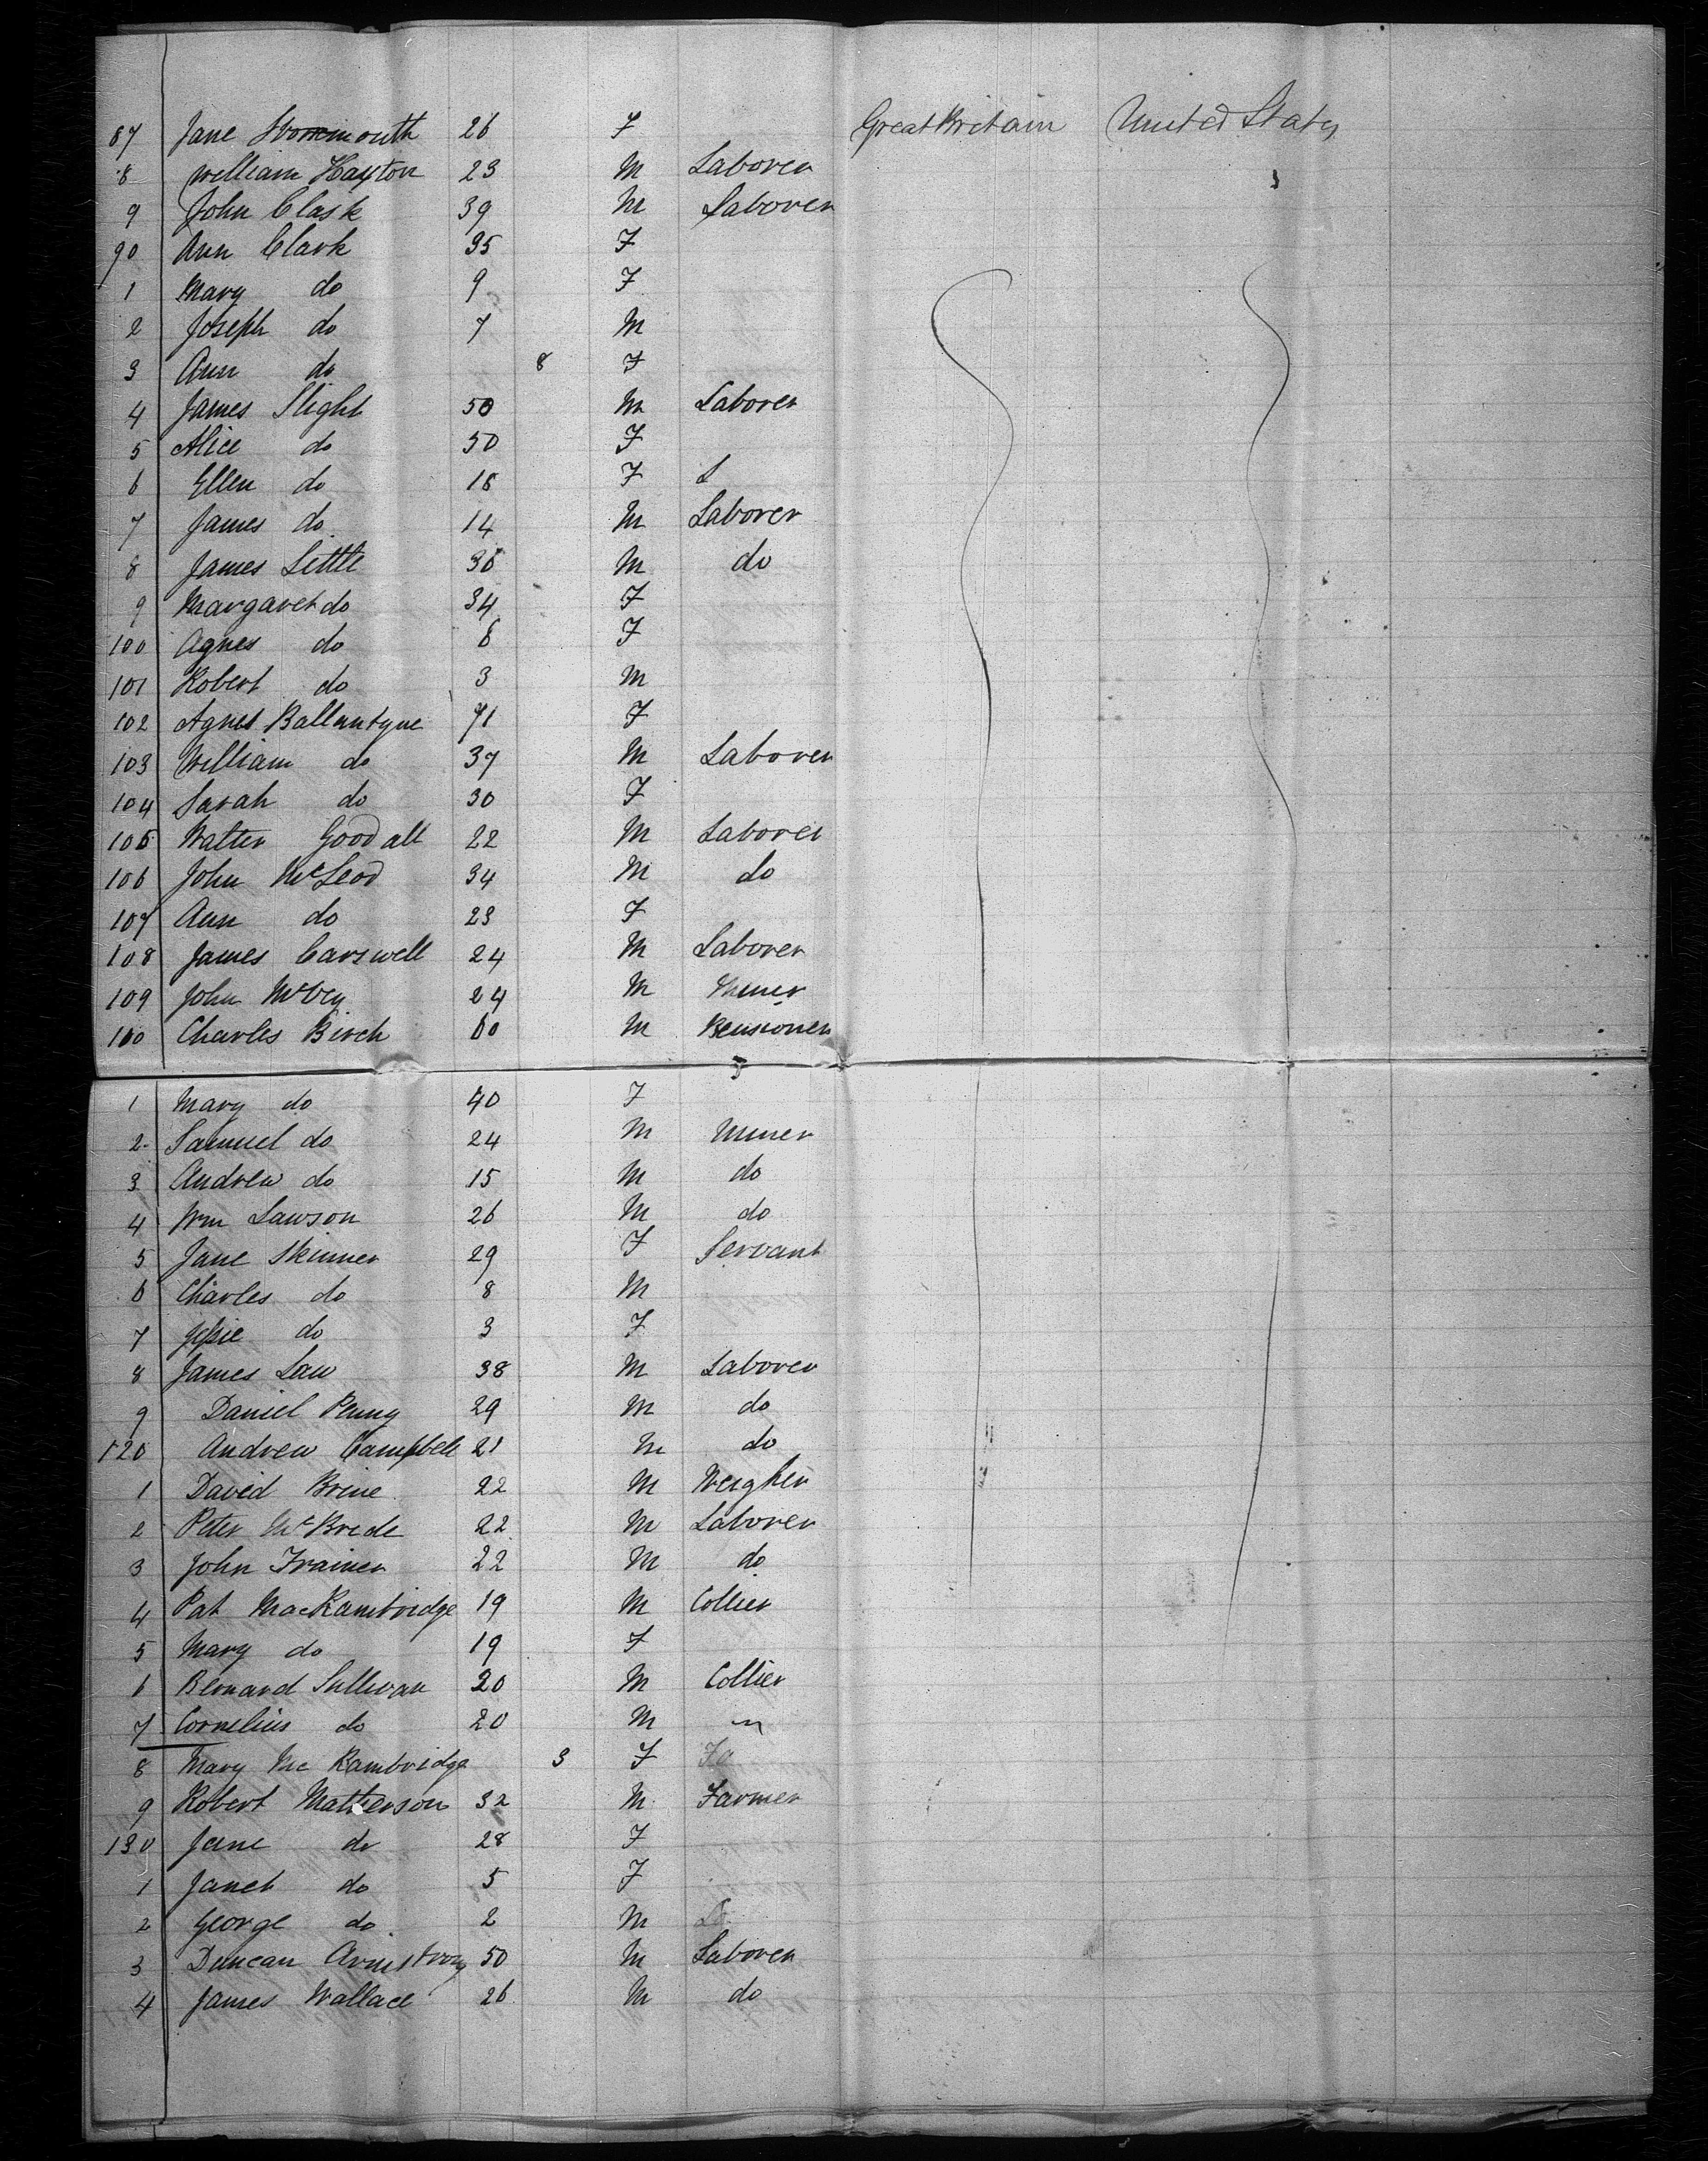 87 Jane 26 F Great Britain United States
8 William Hayton 23 M Laborer
9 John Clark 39 M Laborer
90 Ann Clark 35 F
1 Mary do 9 F
2 Joseph do 7 M
3 Ann do 8 F
4 James Slight 50 M Laborer
5 Alice do 50 F
6 Ellen do 16 F L
7 James do 14 M Laborer
8 James Little 36 M do
9 Margaret do 34 F
100 Agnes do 6 F
101 Robert do 3 M
102 Agnes Ballantyne 71 F
103 William do 37 M Laborer
104 Sarah do 30 F
105 Walter Goodall 22 M Laborer
106 John McLeod 34 M do
107 Ann do 23 F
108 James Carswell 24 M Laborer
109 John McVey 24 M Miner
110 Charles Birch 60 M Pensioner
1 Mary do 40 F
2 Samuel do 24 M Miner
3 Andrew do 15 M do
4 Wm Lawson 26 M do
5 Jane Skinner 29 F Servant
6 Charles do 8 M
7 Jessie do 3 F
8 James Law 38 M Laborer
9 Daniel Penny 29 M do
120 Andrew Campbell 21 M do
1 David Brine 22 M Weigher
2 Peter McBride 22 M Laborer
3 John Trainer 22 M do
4 Pat MacKambridge 19 M Collier
5 Mary do 19 F
6 Bernard Sullivan 20 M Collier
7 Cornelius do 20 M "
8 Mary McKambridge 3 F Fa
9 Robert Matherson 32 M Farmer
130 Jane do 28 F
1 Janet do 5 F
2 George do 2 M Lo
3 Duncan Armstrong 50 M Laborer
4 James Wallace 26 M do